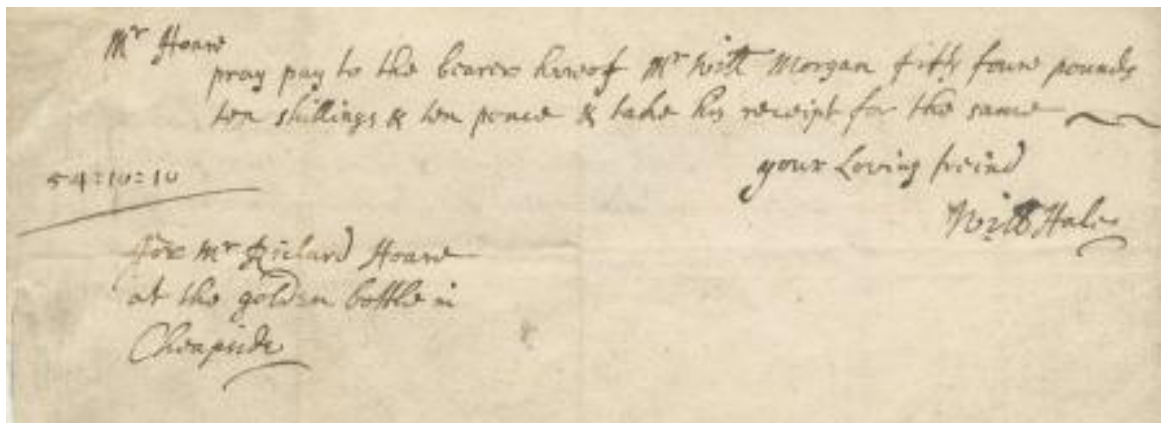 Mr Hoare
pray pay to the bearer hereof Mr Will Morgan fifty foure pounds
ten shillings & ten pence & take his receipt for the same
your Loving freind
54:10:10
Will Hale
For Mr Richard Hoare
at the golden bottle in
Cheapside